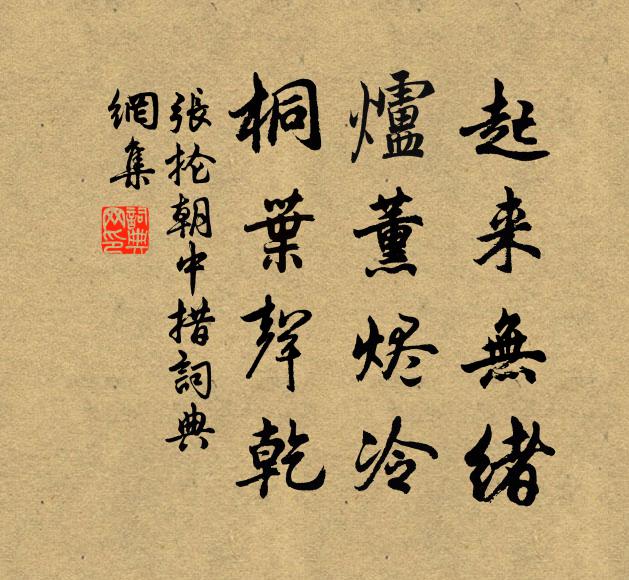 起来無緒
爐薰烬冷
桐葉聲乾
張抡朝中措詞典
網集
詞典
网印